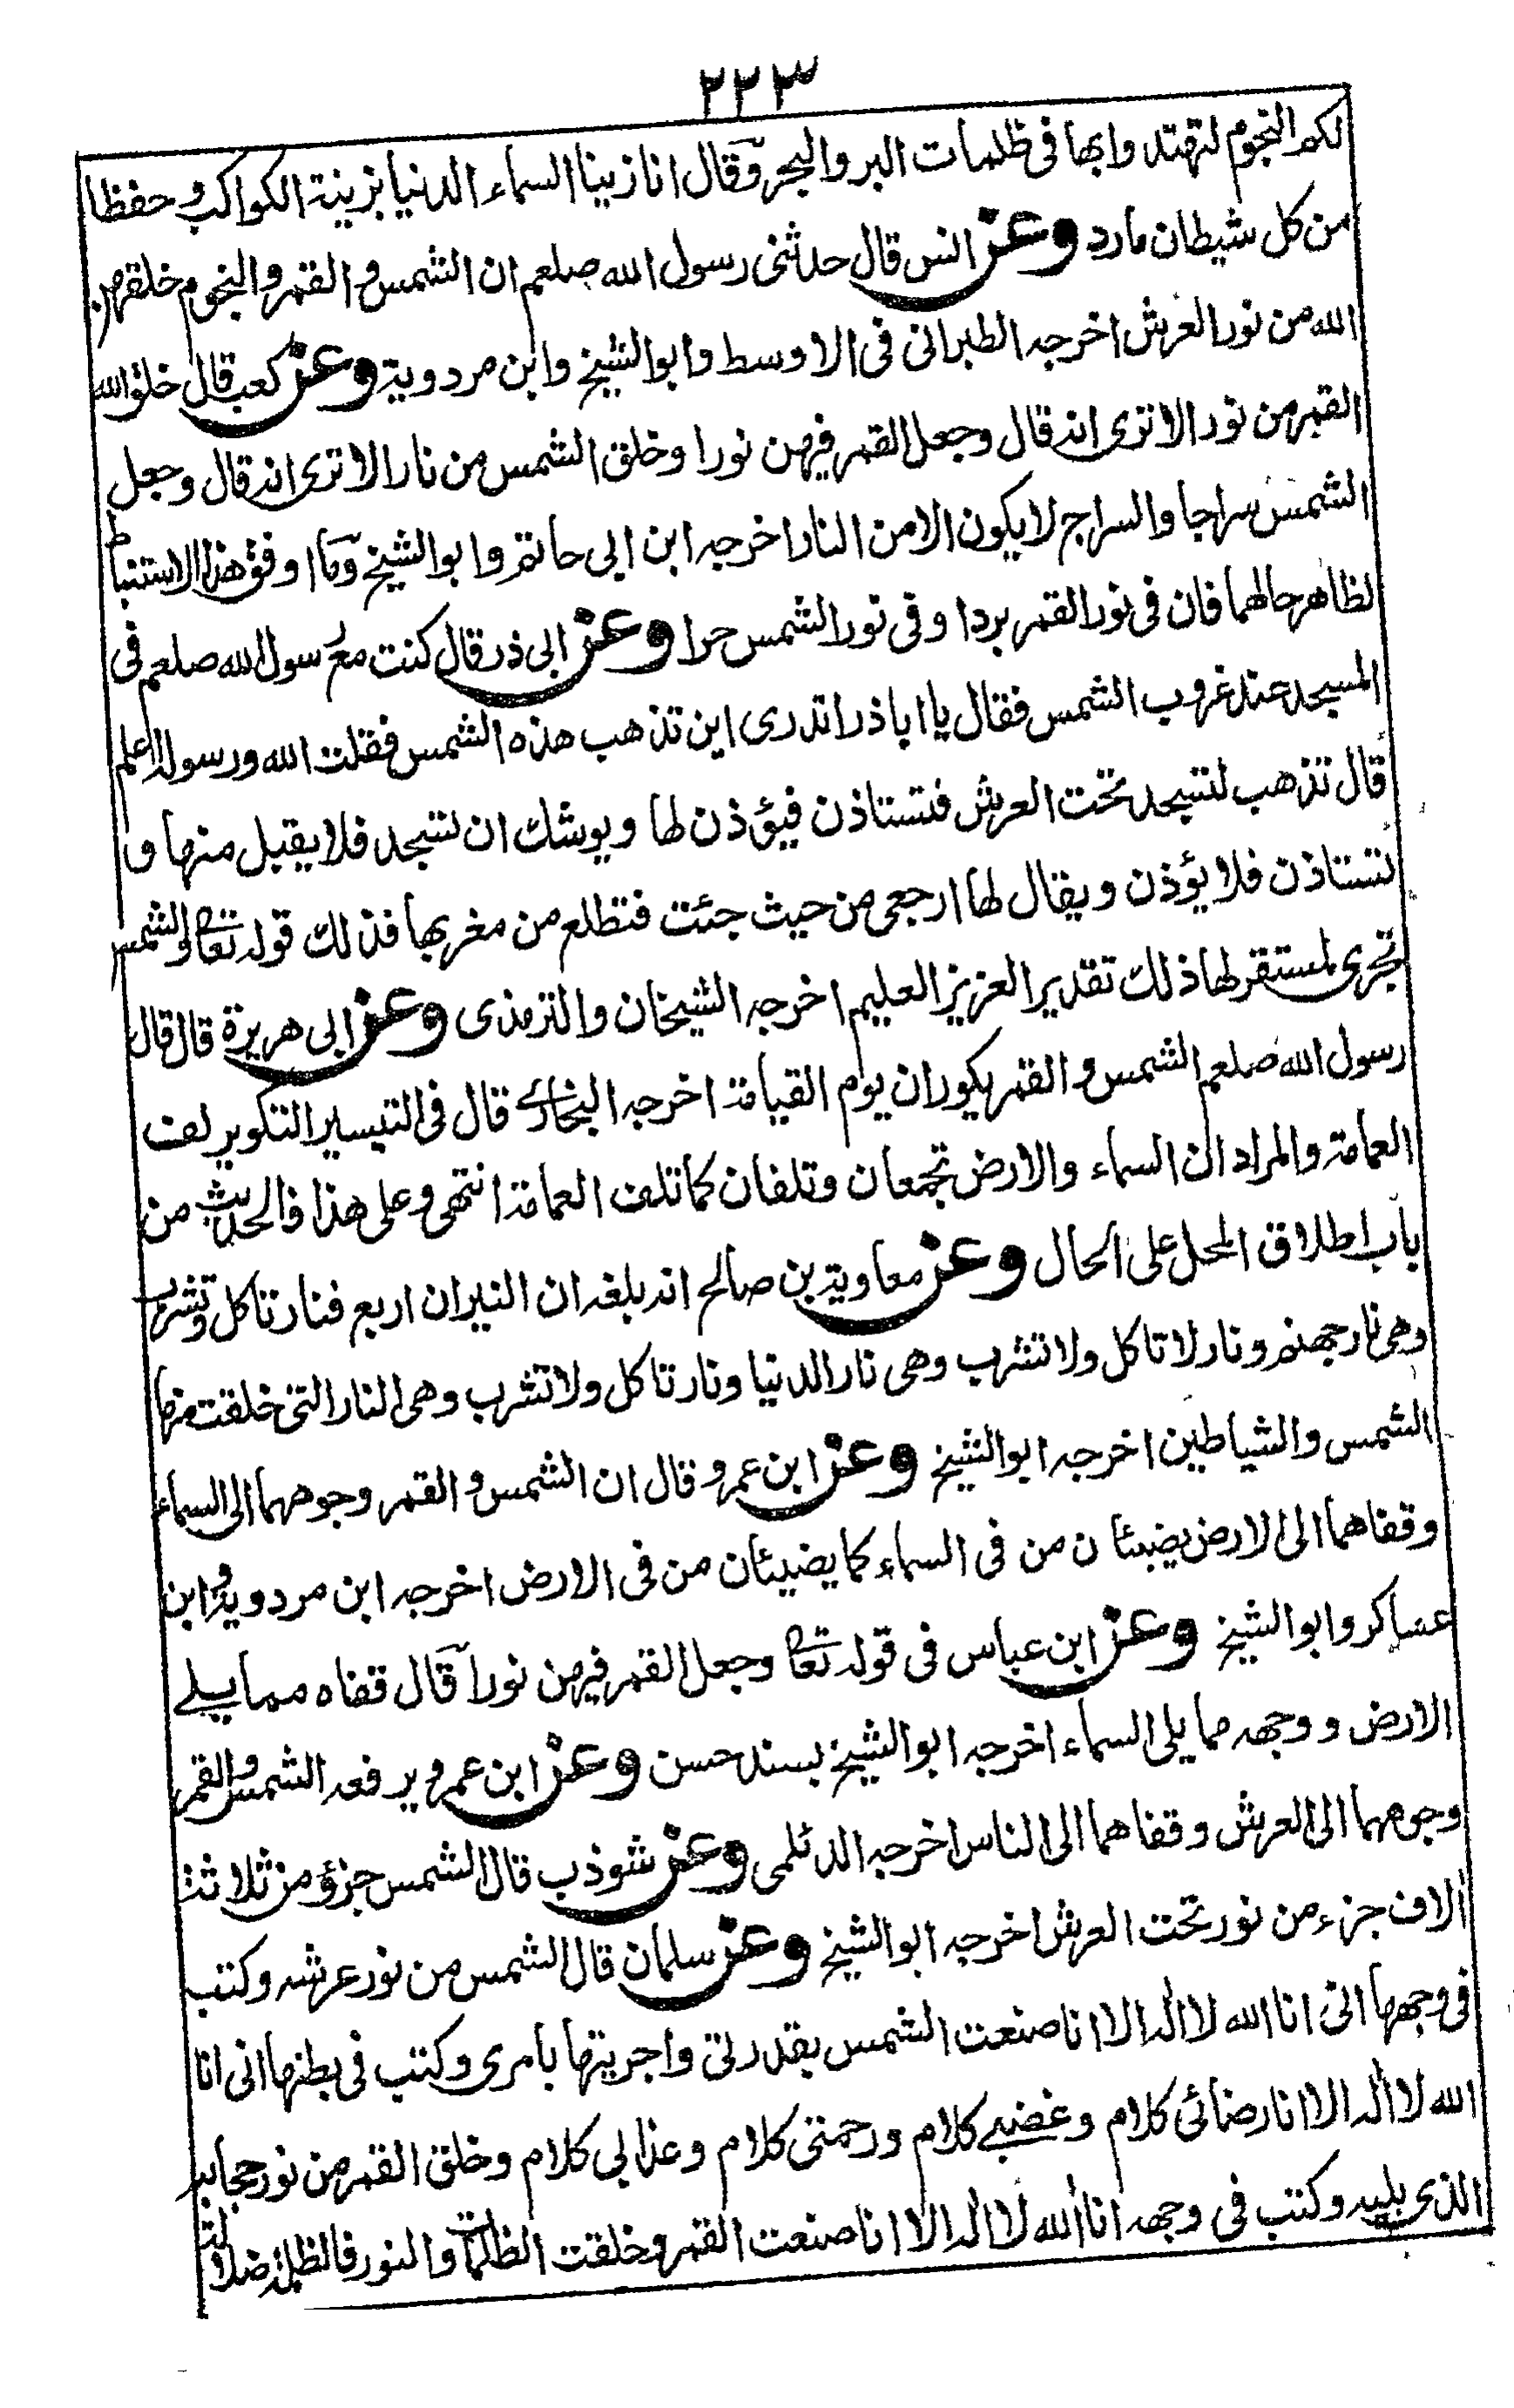 ٢٢٣
لكم النجوم لتهتدوا بها فى ظلمات البر والبحر وقال انا زينا السماء الدنيا بزينة الكواكب وحفظا
من كل شيطان مارد وعن انس قال حدثنى رسول الله صلعم ان الشمس والقمر والنجوم خلقهن
الله من نور العرش اخرجه الطبرانى فى الاوسط وابو الشيخ وابن مردوية وعن كعب قال خلق الله
القمر من نور الا ترى انه قال وجعل القمر فيهن نورا وخلق الشمس من نار الا ترى انه قال وجعل
الشمس سراجا والسراج لا يكون الا من النار اخرجه ابن ابى حاتم وابو الشيخ وما اوفق هذا الاستنباط
لظاهر حالهما فان فى نور القمر بردا وفى نور الشمس حرا وعن ابى ذر قال كنت مع رسول الله صلعم فى
المسجد عند غروب الشمس فقال يا ابا ذر اتدرى اين تذهب هذه الشمس فقلت الله ورسوله اعلم
قال تذهب لتسجد تحت العرش فتستاذن فيؤذن لها ويوشك ان تسجد فلا يقبل منها و
تستاذن فلا يؤذن ويقال لها ارجعى من حيث جئت فتطلع من مغربها فذلك قوله تعالى والشمس
تجرى لمستقر لها ذلك تقدير العزيز العليم اخرجه الشيخان والترمذى وعن ابى هريرة قال قال
رسول الله صلعم الشمس والقمر يكوران يوم القيامة اخرجه البخارى قال فى التيسير التكوير لف
العمامة والمراد ان السماء والارض تجمعان وتلفان كما تلف العمامة انتهى وعلى هذا فالحديث من
باب اطلاق المحل على الحال وعن معاوية بن صالح انه بلغه ان النيران اربع فنار تاكل وتشرب
وهى نار جهنم ونار لا تاكل ولا تشرب وهى نار الدنيا ونار تاكل ولا تشرب وهى النار التى خلقت منها
الشمس والشياطين اخرجه ابو الشيخ وعن ابن عمرو قال ان الشمس والقمر وجوههما الى السماء
وقفاهما الى الارض يضيئان من فى السماء كما يضيئان من فى الارض اخرجه ابن مردوية وابن
عساكر وابو الشيخ وعن ابن عباس فى قوله تعالى وجعل القمر فيهن نورا قال قفاه مما يلے
الارض ووجهه مما يلى السماء اخرجه ابو الشيخ بسند حسن وعن ابن عمرو يرفعه الشمس والقمر
وجوههما الى العرش وقفاهما الى الناس اخرجه الدئلمى وعن شوذب قال الشمس جزؤ من ثلاثة
الاف جزء من نور تحت العرش اخرجه ابو الشيخ وعن سلمان قال الشمس من نور عرشه وكتب
فى وجهها انى انا الله لا اله الا انا صنعت الشمس بقدرتى واجريتها بامرى وكتب فى بطنها انى انا
الله لا اله الا انا رضائى كلام وغضبے كلام ورحمتى كلام وعذابى كلام وخلق القمر من نور حجابه
الذى يليه وكتب فى وجهه انا الله لا اله الا انا صنعت القمر وخلقت الظلمات والنور فالظلمة ضلالة